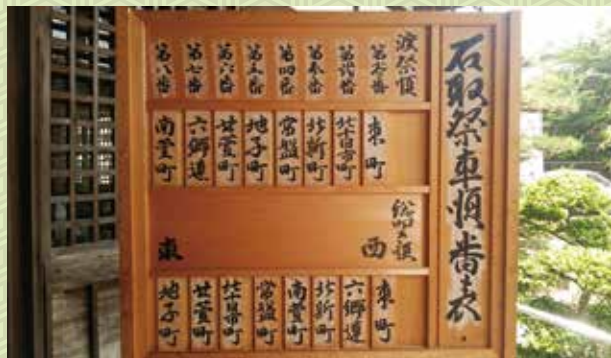 石取祭車順番表
渡祭順
第壱番
第弐番
第参番
第四番
第五番
第六番
第七番
第八番
東町
北新町
常盤町
地子町
萱町
六郷連
南萱町
西
東
東町
六郷連
北新町
南萱町
常盤町
萱町
地子町